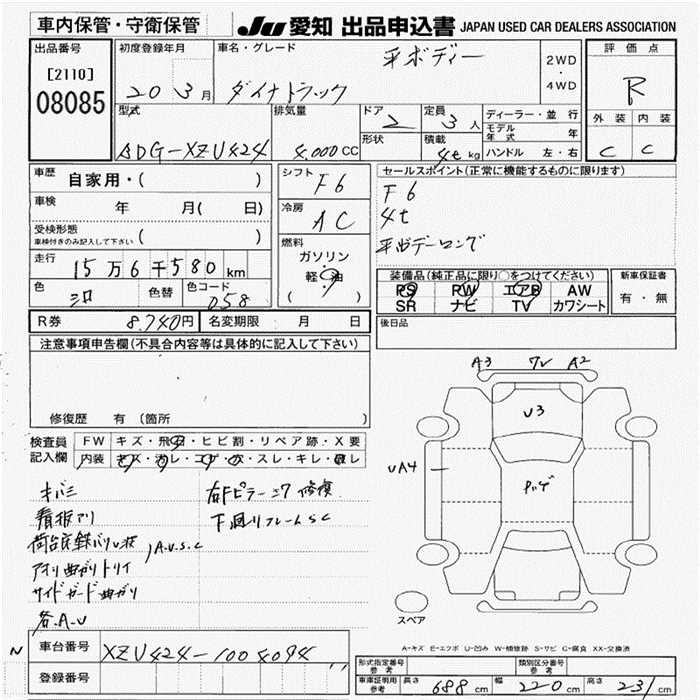 車内保管・守衛保管
JU 愛知 出品申込書 JAPAN USED CAR DEALERS ASSOCIATION
出品番号
[2110]
08085
初度登録年月
20 3月
車名・グレード
平ボディー
ダイナトラック
2WD
・
4WD
評価点
R
外装 内装
C C
型式
BDG-XZU424
排気量
4,000CC
ドア
2
形状
定員
3人
積載
4t kg
ディーラー・並行
モデル年式 年
ハンドル 左・右
車歴
自家用・( )
車検
年 月( 日)
受検形態
車検付きのみ記入して下さい ( )
走行
15万6千580km
色
シロ
色替
色コード
058
シフト
F6
冷房
AC
燃料
ガソリン
軽・油
( )
セールスポイント(正常に機能するものに限ります)
F6
4t
平ボデーロング
装備品(純正品に限り○をつけてください)
PS PW エアB AW
SR ナビ TV カワシート
新車保証書
有・無
後日品
R券 8,740円
名変更期限 月 日
注意事項申告欄(不具合内容等は具体的に記入して下さい)
修復歴 有(箇所 )
検査員
記入欄
FW キズ・飛石・ヒビ割・リペア跡・X要
内装 キズ・汚レ・コゲ・穴・スレ・キレ・欠レ
キバミ
看板アリ
荷台床鉄バリU状
アオリ曲ガリトリイ
) A.U.S.C
サイドガード曲ガリ
各A.U
右Fピラーニク修復
下廻リフレームSC
A3 7V A2
U3
UA4
スペア
A-キズ E-エクボ U-凹み W-補修跡 S-サビ C-腐食 XX-交換済
N
車台番号 XZU424-1004094
登録番号
形式指定番号
参考
類別区分番号
参考
車庫証明用
参考
長さ 688cm 幅 220cm 高さ 231cm